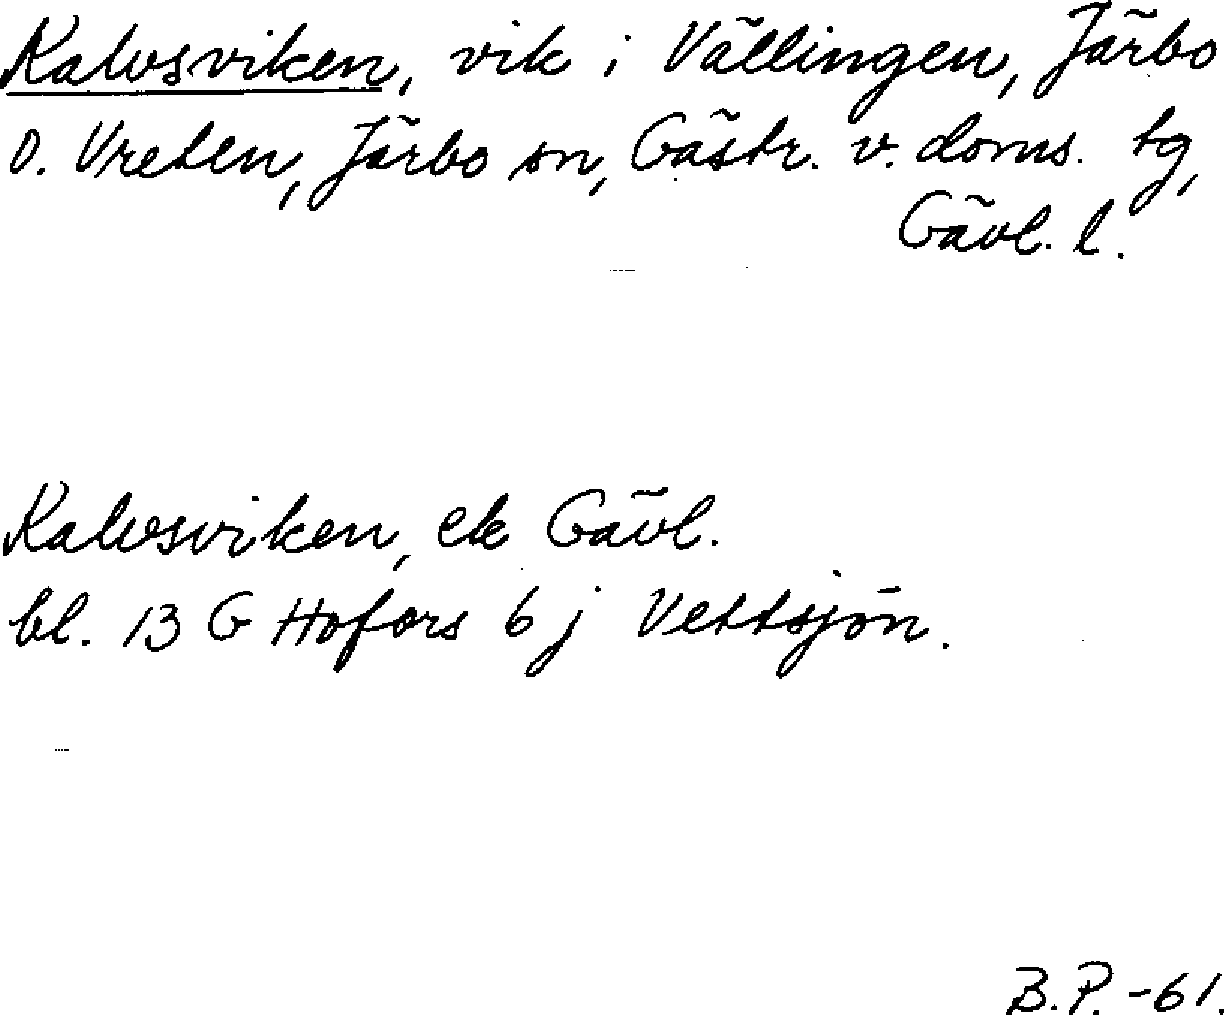 Kalvsviken, vik i Vällingen, Järbo
o. Vreten, Järbo sn, Gästr. v. doms. tg,
Gävl. l.
Kalvsviken, ek Gävl.
bl. 13 G Hofors 6 j Vettsjön.
B.P. -61.